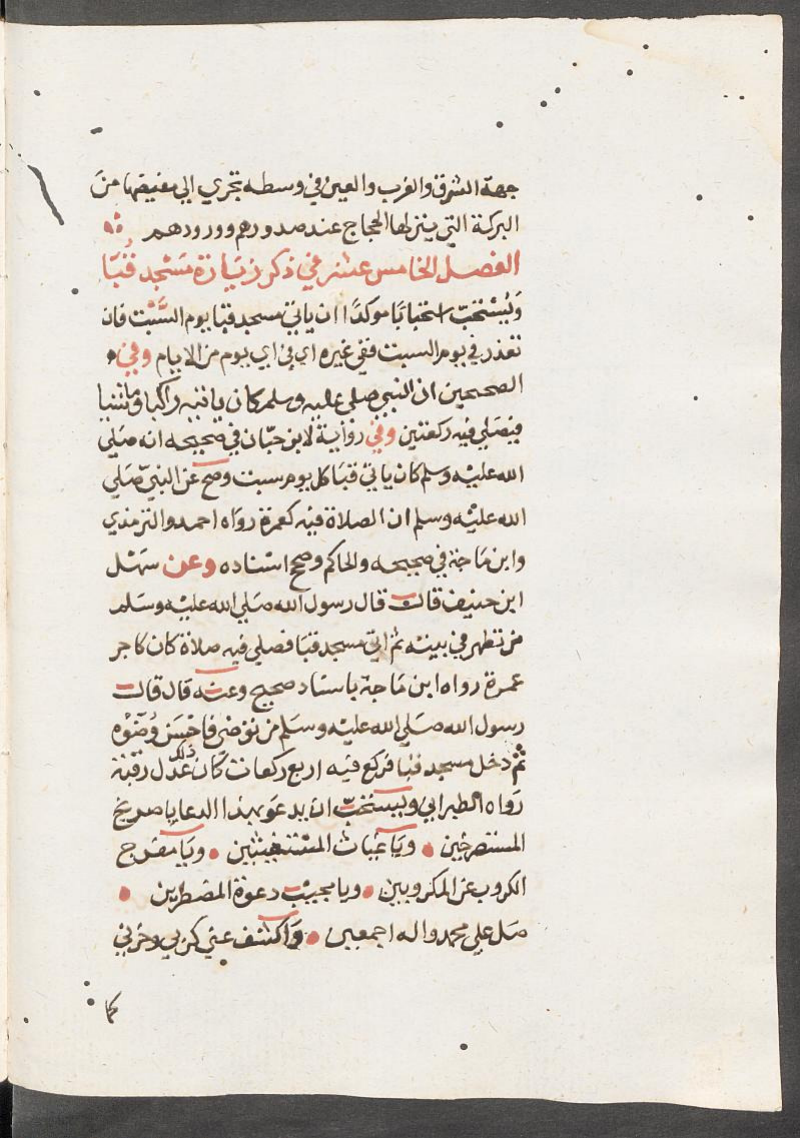 جهة الشرق والغرب والعين في وسطه تجري الى مغيضها من
البركة التي ينزلها الحجاج عند صدورهم وورودهم
الفصل الخامس عشر في ذكر زيارة مسجد قبا
ويستحب استحبابا موكدا ان ياتي مسجد قبا يوم السبت فان
تعذر في يوم السبت ففي غيره اي في اي يوم من الايام وفي
الصحيحين ان النبي صلى عليه وسلم كان ياتيه راكبا وماشيا
فيصلي فيه ركعتين وفي رواية لابن حبان في صحيحه انه صلي
الله عليه وسلم كان ياتي قبا كل يوم سبت وصح عن النبي صلي
الله عليه وسلم ان الصلاة فيه كعمرة رواه احمد والترمذي
وابن ماجة في صحيحه والحاكم وصحح اسناده وعن سهل
ابن حنيف قال قال رسول الله صلي الله عليه وسلم
من تطهر في بيته ثم اتي مسجد قبا فصلي فيه صلاة كان كاجر
عمرة رواه ابن ماجة باسناد صحيح وعنه قال قال
رسول الله صلي الله عليه وسلم من توضي فاحسن وضوه
ثم دخل مسجد قبا فركع فيه اربع ركعات كان ذلك عدل رقبة
رواه الطبراني ويستحب ان يدعو بهذا الدعا يا صريخ
المستصرخين ويا غياث المستغيثين ويا مفرج
الكروب عن المكروبين ويا مجيب دعوة المضطرين
صل علي محمد واله اجمعين واكشف عني كربي وحزني
كما